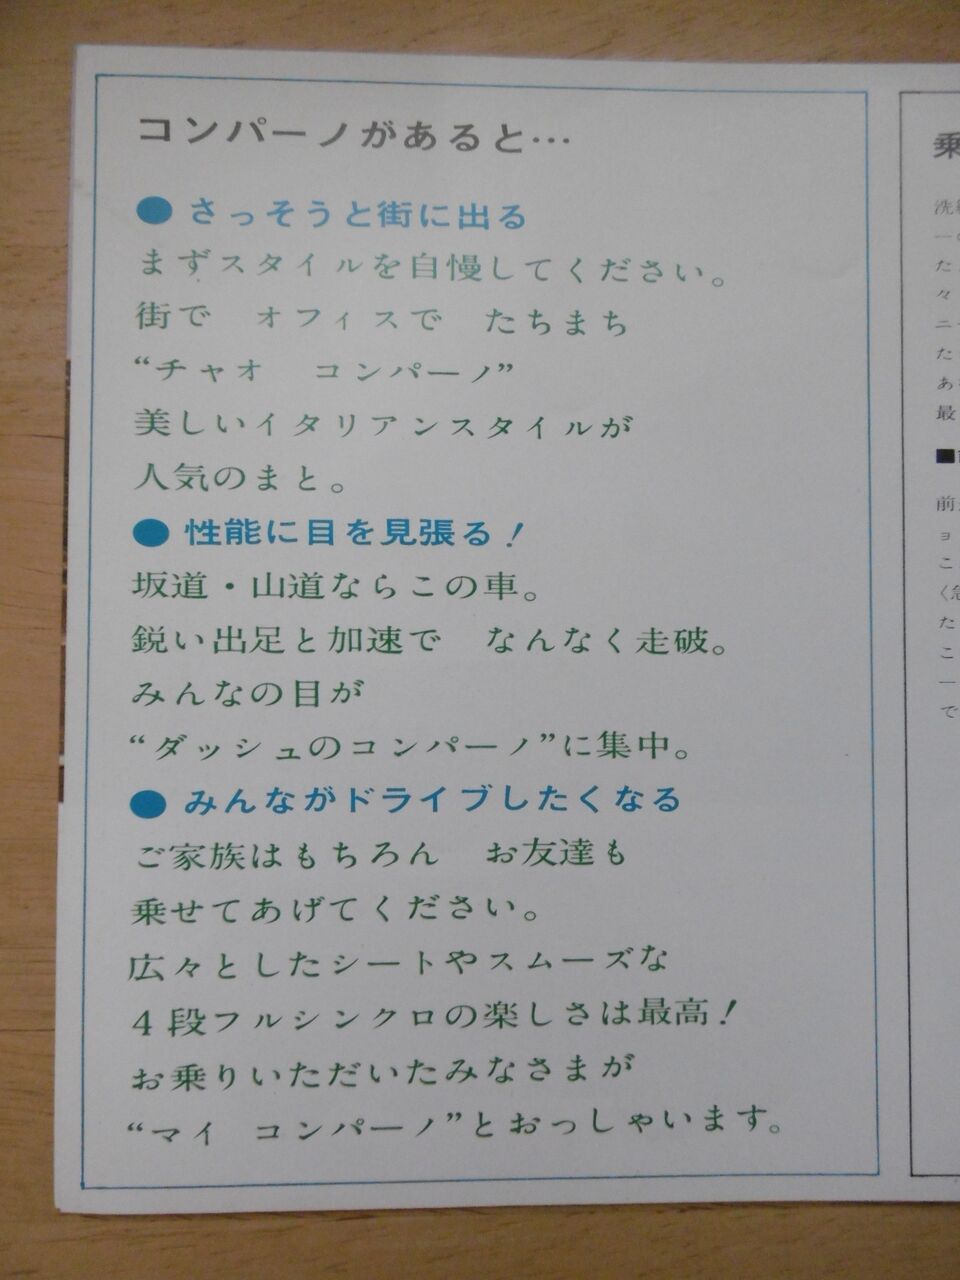 コンパーノがあると…
● さっそうと街に出る
まずスタイルを自慢してください。
街で　オフィスで　たちまち
“チャオ　コンパーノ”
美しいイタリアンスタイルが
人気のまと。
● 性能に目を見張る！
坂道・山道ならこの車。
鋭い出足と加速で　なんなく走破。
みんなの目が
“ダッシュのコンパーノ”に集中。
● みんながドライブしたくなる
ご家族はもちろん　お友達も
乗せてあげてください。
広々としたシートやスムーズな
4段フルシンクロの楽しさは最高！
お乗りいただいたみなさまが
“マイ　コンパーノ”とおっしゃいます。
乗
洗
一
た
々
ニ
た
あ
最
■
前
ョ
こ
た
こ
一
で